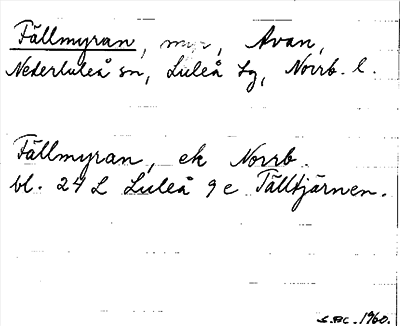 Fällmyran, myr, Avan,
Nederluleå sn, Luleå tg, Norrb. l.
Fällmyran, ek Norrb.
bl. 24 L Luleå 9 e Tälltjärnen.
1960.